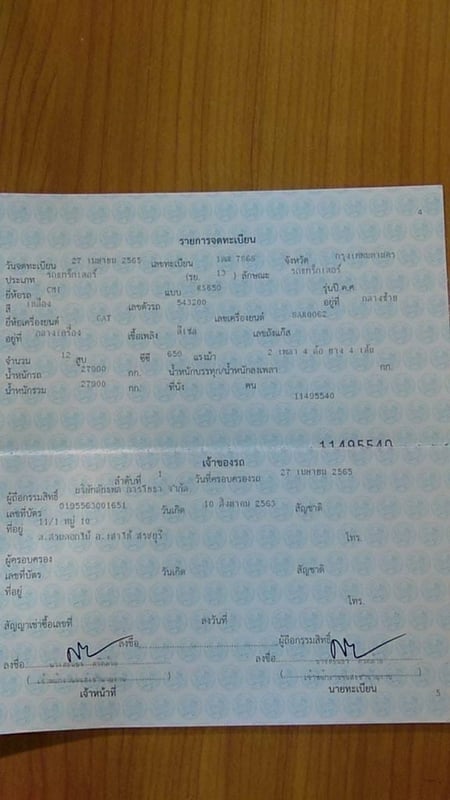 4
รายการจดทะเบียน
วันจดทะเบียน 27 เมษายน 2565 เลขทะเบียน 7868 จังหวัด กรุงเทพมหานคร
ประเภท รถแทรกเตอร์ (รย. 13 ) ลักษณะ รถแทรกเตอร์
ยี่ห้อรถ แบบ RS650 รุ่นปี ค.ศ.
สี เหลือง เลขตัวรถ 543200 อยู่ที่ กลางซ้าย
ยี่ห้อเครื่องยนต์ CAT เลขเครื่องยนต์
อยู่ที่ กลางเครื่อง เชื้อเพลิง ดีเซล เลขถังแก๊ส
จำนวน 12 สูบ ซีซี 650 แรงม้า 2 เพลา 4 ล้อ ยาง 4 เส้น
น้ำหนักรถ 27900 กก. น้ำหนักบรรทุก/น้ำหนักลงเพลา กก.
น้ำหนักรวม 27900 กก. ที่นั่ง คน
11495540
11495540
เจ้าของรถ
ลำดับที่ 1 วันที่ครอบครองรถ 27 เมษายน 2565
ผู้ถือกรรมสิทธิ์ จำกัด
เลขที่บัตร 0195563001651 วันเกิด 10 สิงหาคม 2563 สัญชาติ
ที่อยู่ 11/1 หมู่ 10
ต.สวนดอกไม้ อ.เสาไห้ สระบุรี โทร.
ผู้ครอบครอง
เลขที่บัตร วันเกิด สัญชาติ
ที่อยู่
โทร.
สัญญาเช่าซื้อเลขที่ ลงวันที่
ลงชื่อ ผู้ถือกรรมสิทธิ์
ลงชื่อ ลงชื่อ
เจ้าหน้าที่ นายทะเบียน
5